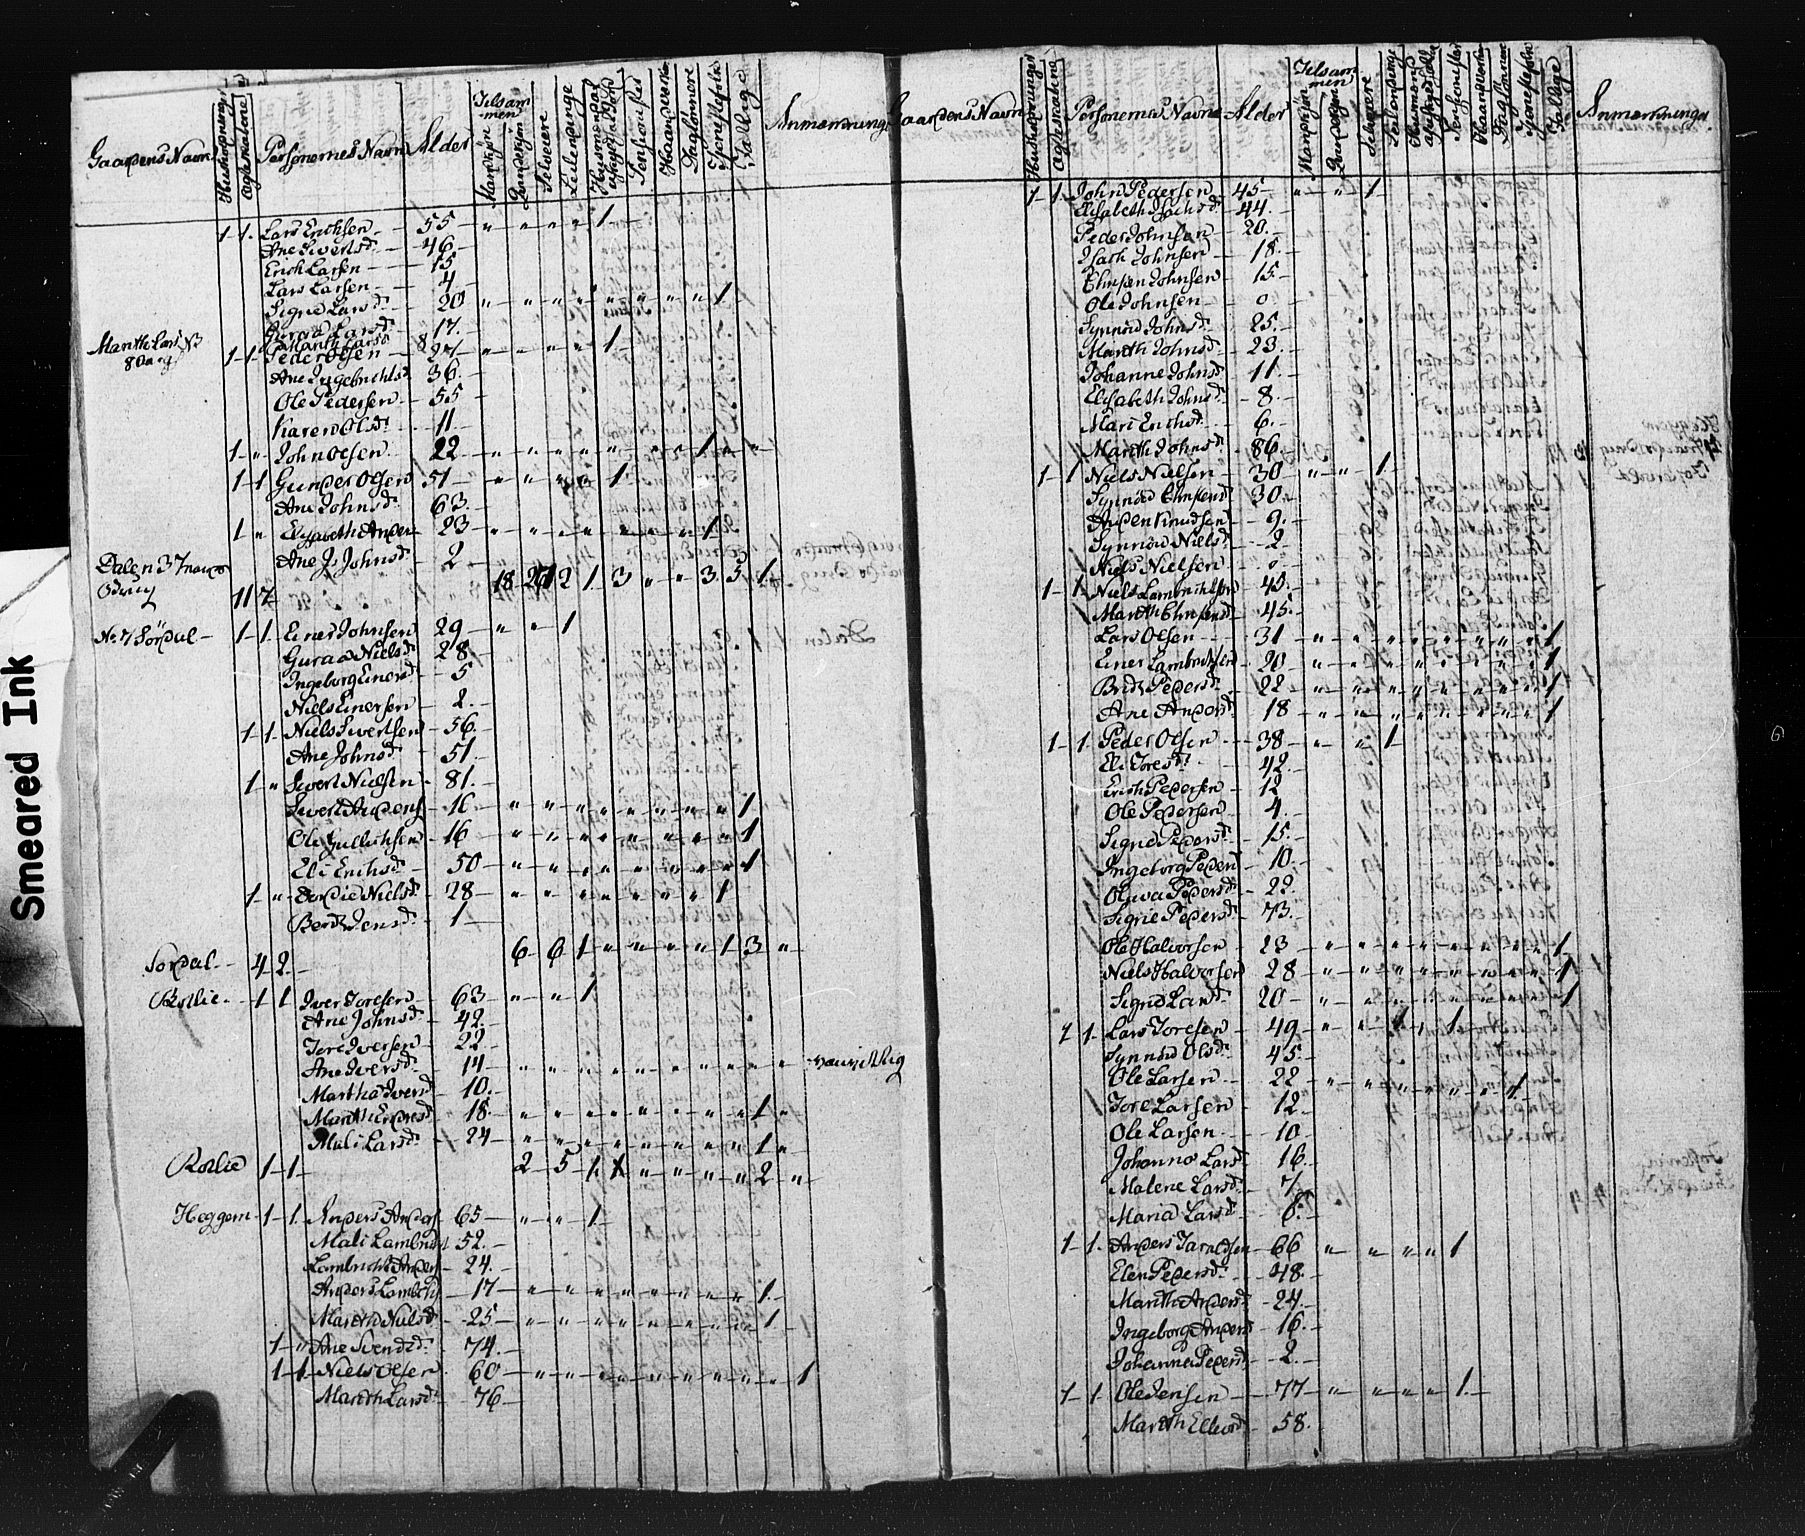 Smeared Ink
Gaardens Navn Huusholdninger Ægteskabene Personernes Navne Alder Tilsammen Mandkjøn Qvindekjøn Selveiere Leilendinge Huusmænd Pensionister Haandverkere Daglønnere Tjenestefolk Fattige Anmærkninger
1 1. Lars Erichsen 55 " " " " 1
Ane Sivertsd. 46.
Erich Larsen 15
Lars Larsen 4
Sigrid Larsd. 20 " " " " " " " " 1
Guraa Larsd. 17.
Marith Larsd. 8
Marith Larsd. 8 Aarig
1 1 Peder Olsen 27 " " " " 1
Ane Ingebrichtsd. 36.
Ole Pedersen 55
Karen Olsd. 11
1 " John Olsen 22 " " " " " " " 1 " "
1 1 Gunder Olsen 51 " " " " 1
Ane Johnsd. 63.
1 " Elisabeth Anders 23 " " " " " " " 1
Ane J. Johnsd. 2
Dalen 11 7 18 1 3 " " 3 5 1
No. 7 Sørdal 1 1. Einer Johnsen 29 " " 1
Guraa Nielsd. 28
Ingeborg Einersd. 5
Niels Einersen 2.
1 1. Niels Sivertsen 56.
Ane Johnsd. 51.
1 " Sivert Nielsen 81.
Sivert Anders 16 " " " " " " " " 1
Ole Gullichsen 16 " " " " " " " " 1
Eli Erichsd. 50 " " " " " " " " 1
1 " Dordie Nielsd. 28 " " " " " " " 1
Berit Jensd. 1
Sordal 4 2. 6 6 1 " " " " 1 3 "
Rødlie 1 1 Iver Toresen 63 " " 1
Ane Johnsd. 42.
Tore Iversen 22
Ane Iversd. 14 " " " " " " " " " " vanvittig
Martha Iversd. 10.
Marith Endresd. 18. " " " " " " " " 1 "
Mali Larsd. 24 " " " " " " " " 1 "
Rødlie 1 1. 2 5 1 " " " " 2 "
Heggem 1 1. Anders Anders 65 " " 1
Mali Lambrichtsd. 52.
Lambricht Anders 24.
Anders Lambrichts 17 " " " " " " " " 1.
Marith Nielsd. 25 " " " " " " " " 1
1 " Ane Svendsd. 74.
1 1. Niels Olsen 60 " " " " " " " " " 1
Marith Larsd. 76
Gaardens Navn Huusholdninger Ægteskabene Personernes Navne Alder Tilsammen Mandkjøn Qvindekjøn Selveiere Leilendinge Huusmænd Pensionister Haandverkere Daglønnere Tjenestefolk Fattige Anmærkninger
1 1. John Pedersen 45 " " 1
Elisabeth Isachsd. 44.
Peder Johnsen 20.
Isach Johnsen 18.
Christen Johnsen 15.
Ole Johnsen 0.
Synnøv Johnsd. 25.
Marith Johnsd. 23.
Johanne Johnsd. 11.
Elisabeth Johnsd. 8.
Mari Erichsd. 6.
Marith Johnsd. 86.
1 1 Niels Nielsen 30 " " 1
Synnøv Christensd. 30.
Anders Knudsen 9.
Synnøv Nielsd. 2
Niels Nielsen 0
1 1. Niels Lambrichtsen 45.
Marith Christensd. 45.
Lars Olsen 31 " " " " " " " " 1
Einer Lambrichtsen 20 " " " " " " " " 1
Brit Pedersd. 22 " " " " " " " " 1
Ane Andersd. 18 " " " " " " " " 1
1 1 Peder Olsen 38 " " 1
Eli Toresd. 42
Erich Pedersen 12
Ole Pedersen 4.
Sigrid Pedersd. 15.
Ingeborg Pedersd. 10.
Olava Pedersd. 22.
Sigrie Pedersd. 73.
Ole Halvorsen 23 " " " " " " " " 1
Niels Halvorsen 28 " " " " " " " " 1
Sigrid Larsd. 20 " " " " " " " " 1
1 1. Lars Toresen 49 " " 1 " 1
Synnøv Olsd. 45.
Ole Larsen 22 " " " " " " 1
Tore Larsen 12
Ole Larsen 10
Johanna Larsd. 16.
Malene Larsd. 7.
Maria Larsd. 6.
1 1. Anders Taraldsen 66 " " " " 1
Elen Pedersd. 48.
Marith Andersd. 24.
Ingeborg Andersd. 16.
Johanna Pedersd. 2.
1 1. Ole Jensen 77 " " " " 1.
Marith Ellevsd. 58.